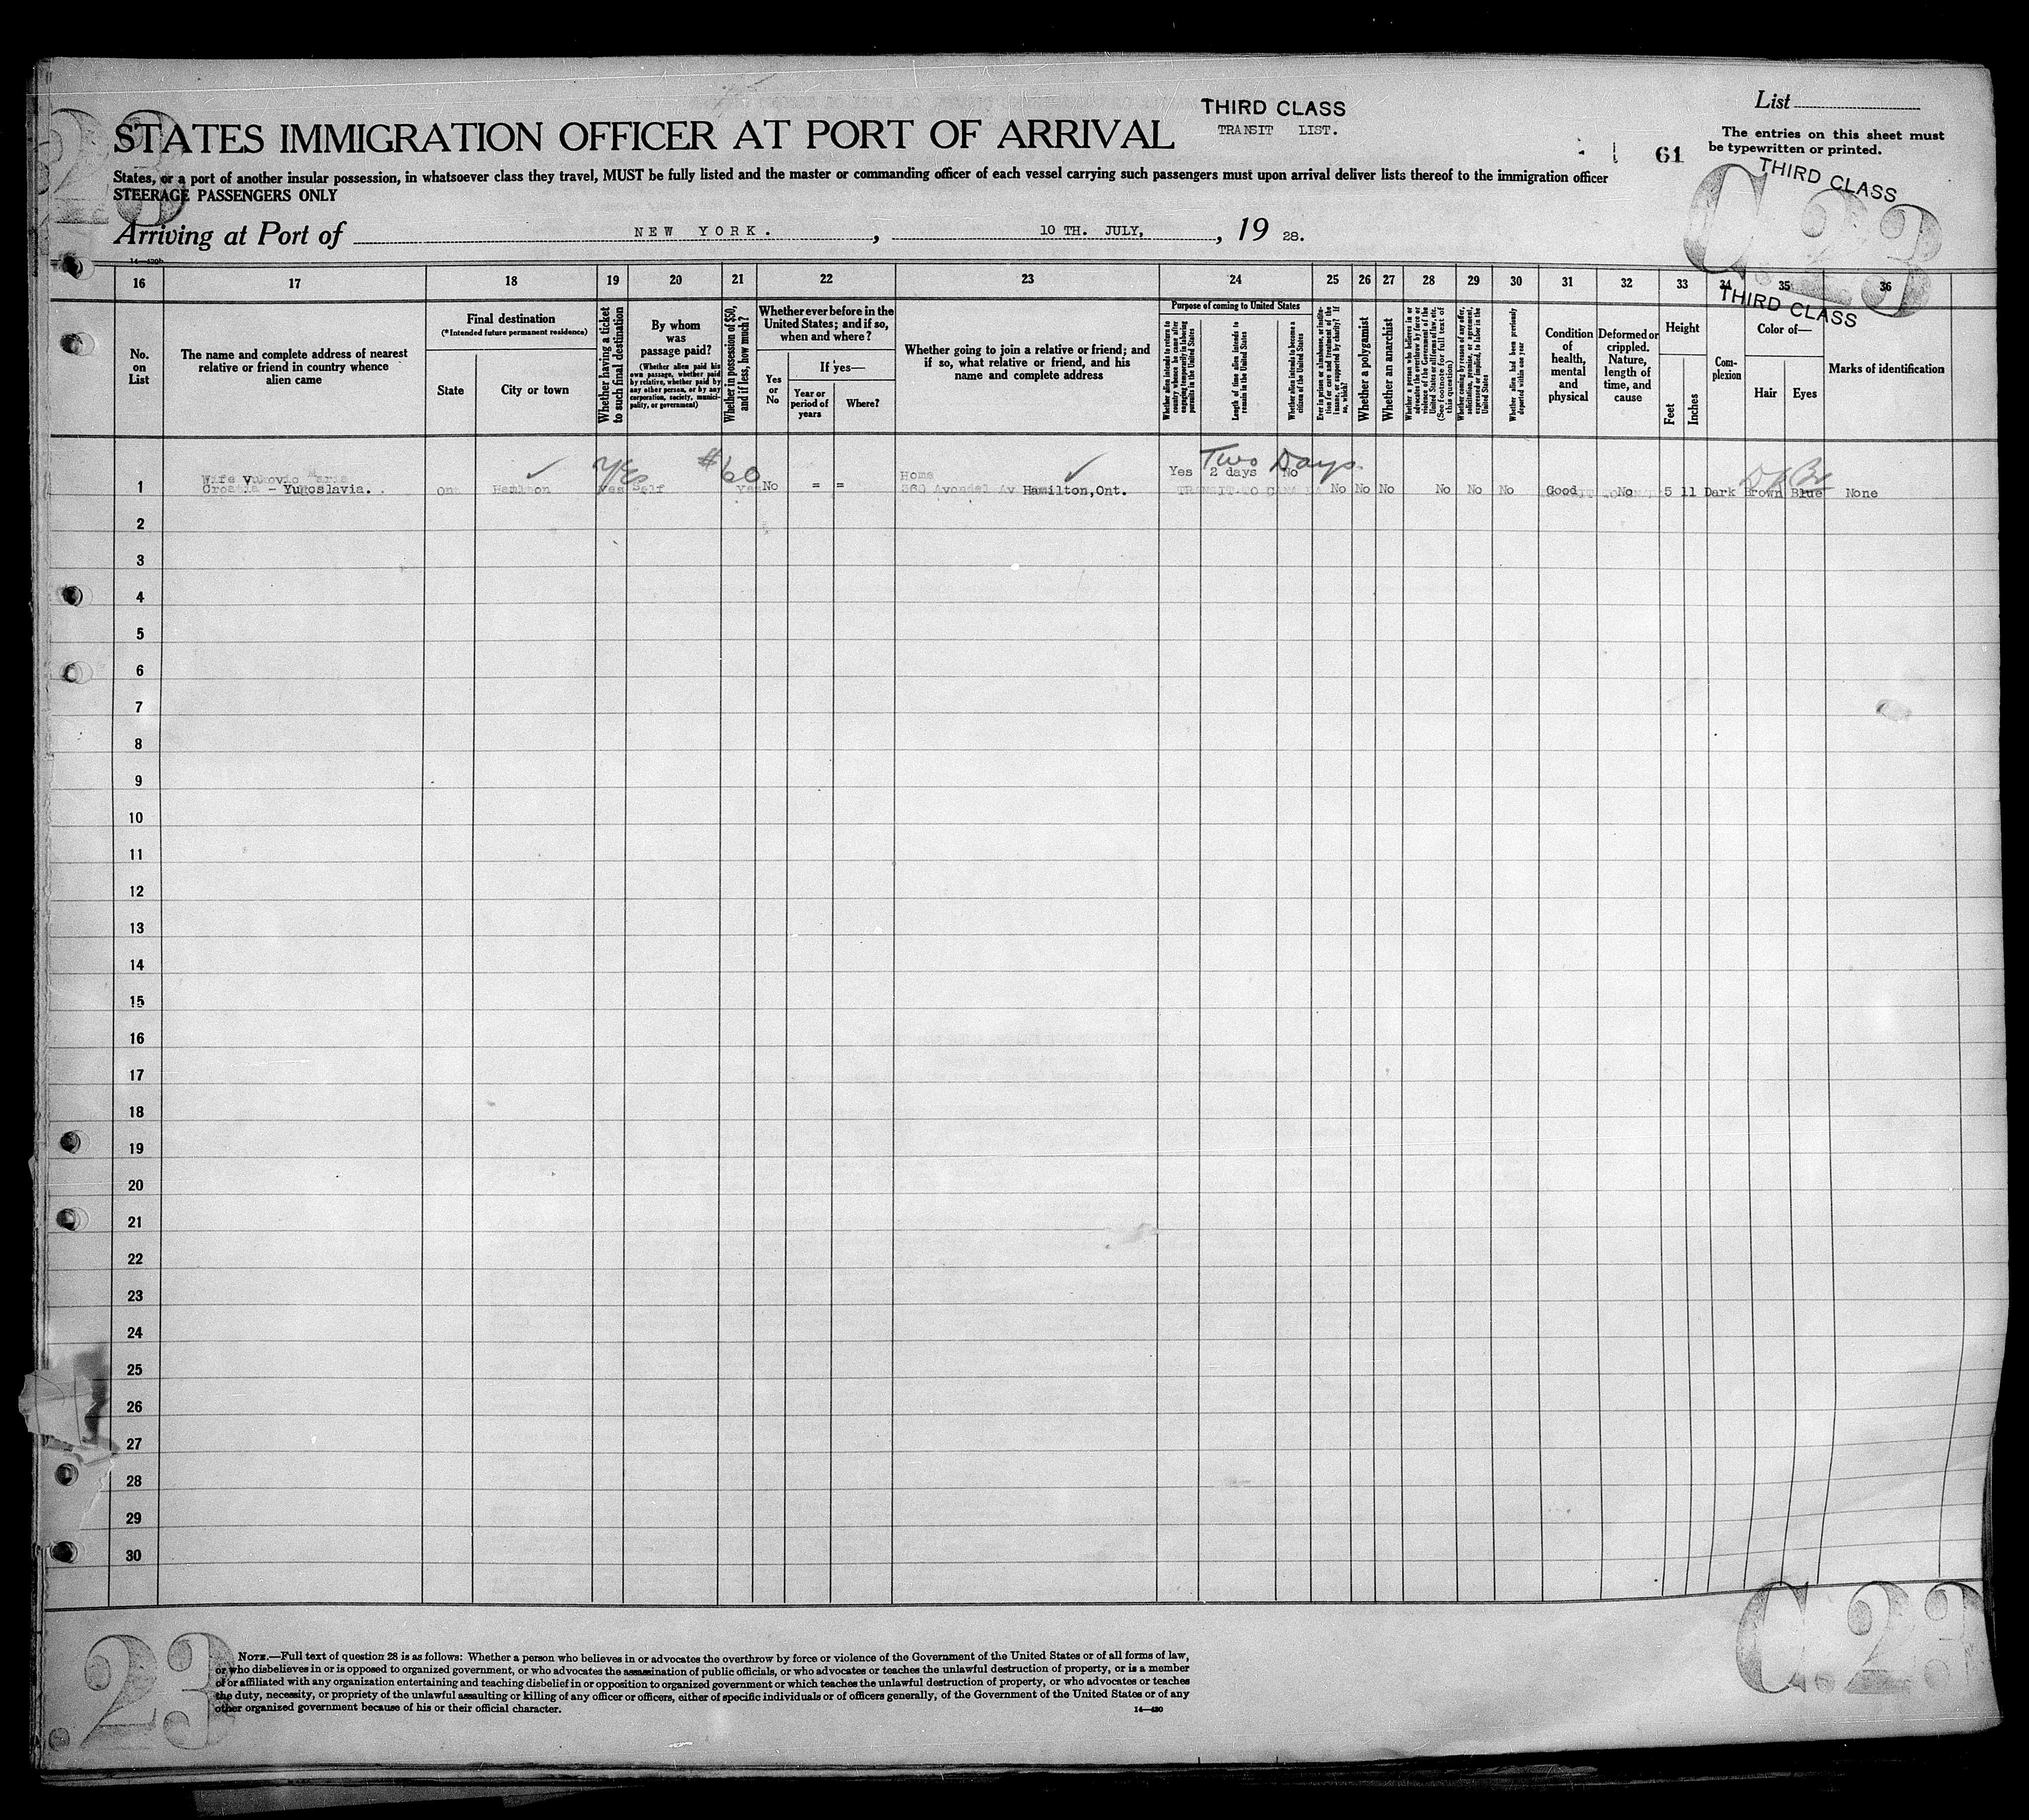 THIRD CLASS
TRANSIT LIST.
List
STATES IMMIGRATION OFFICER AT PORT OF ARRIVAL
61
The entries on this sheet must
be typewritten or printed.
THIRD CLASS
C 23
23
States, or a port of another insular possession, in whatsoever class they travel, MUST be fully listed and the master or commanding officer of each vessel carrying such passengers must upon arrival deliver lists thereof to the immigration officer
STEERAGE PASSENGERS ONLY
Arriving at Port of NEW YORK. , 10 TH. JULY, , 19 28.
THIRD CLASS
16 17 18 19 20 21 22 23 24 25 26 27 28 29 30 31 32 33 34 35 36
No.
on
List
The name and complete address of nearest
relative or friend in country whence
alien came
Final destination
(*Intended future permanent residence)
State
City or town
Whether having a ticket
to such final destination
By whom
was
passage paid?
(Whether alien paid his
own passage, whether paid
by relative, whether paid by
any other person, or by any
corporation, society, munici-
pality, or government)
Whether in possession of $50,
and if less, how much?
Whether ever before in the
United States; and if so,
when and where?
Yes
or
No
If yes—
Year or
period of
years
Where?
Whether going to join a relative or friend; and
if so, what relative or friend, and his
name and complete address
Purpose of coming to United States
Whether alien intends to return to
country whence he came after
engaging temporarily in laboring
pursuits in the United States
Length of time alien intends to
remain in the United States
Whether alien intends to become a
citizen of the United States
Ever in prison or almshouse, or institu-
tion for care and treatment of the
insane, or supported by charity? If
so, which?
Whether a polygamist
Whether an anarchist
Whether a person who believes in or
advocates the overthrow by force or
violence of the Government of the
United States or all forms of law, etc.
(See footnote for full text of
this question)
Whether coming by reason of any offer,
solicitation, promise, or agreement,
expressed or implied, to labor in the
United States
Whether alien had been previously
deported within one year
Condition
of
health,
mental
and
physical
Deformed or
crippled.
Nature,
length of
time, and
cause
Height
Feet
Inches
Com-
plexion
Color of—
Hair
Eyes
Marks of identification
YES $60 Two Days
Wife Vukovic Maria Home Yes 2 days No DK Br
1 Croatia - Yugoslavia. Ont Hamilton Yes Self Yes No = = 360 Avondel Av Hamilton,Ont. TRANSIT TO CANADA No No No No No No Good No 5 11 Dark Brown Blue None
2
3
4
5
6
7
8
9
10
11
12
13
14
15
16
17
18
19
20
21
22
23
24
25
26
27
28
29
30
23
C 23
NOTE.—Full text of question 28 is as follows: Whether a person who believes in or advocates the overthrow by force or violence of the Government of the United States or of all forms of law,
or who disbelieves in or is opposed to organized government, or who advocates the assassination of public officials, or who advocates or teaches the unlawful destruction of property, or is a member
of or affiliated with any organization entertaining and teaching disbelief in or opposition to organized government or which teaches the unlawful destruction of property, or who advocates or teaches
the duty, necessity, or propriety of the unlawful assaulting or killing of any officer or officers, either of specific individuals or of officers generally, of the Government of the United States or of any
other organized government because of his or their official character.
14—430